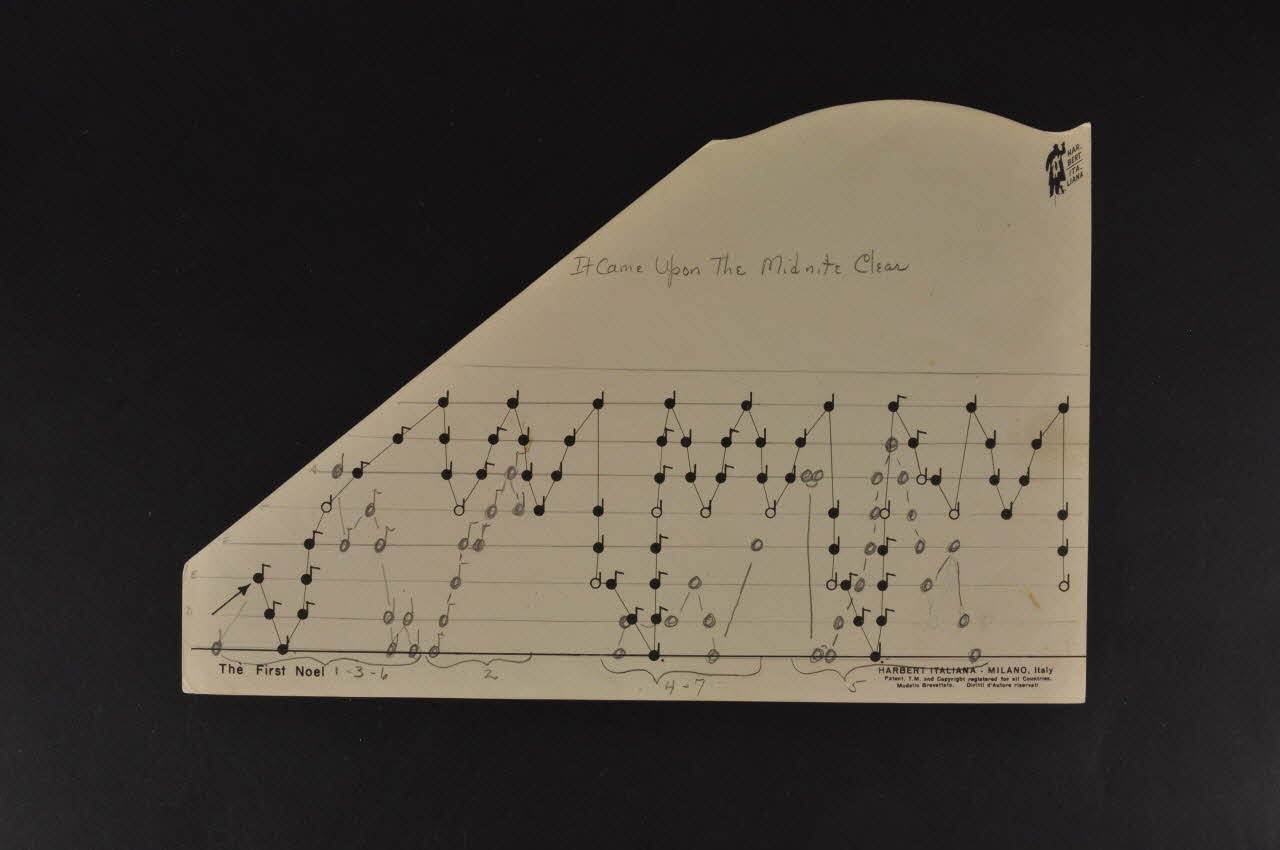 HAR-
BERT
ITA-
LIANA
It Came Upon The Midnite Clear
A
E
E
D
The First Noel 1-3-6
2
4-7
5
HARBERT ITALIANA - MILANO, Italy
Patent. T.M. and Copyright registered for all Countries.
Modello Brevettato. Diritti d'Autore riservati